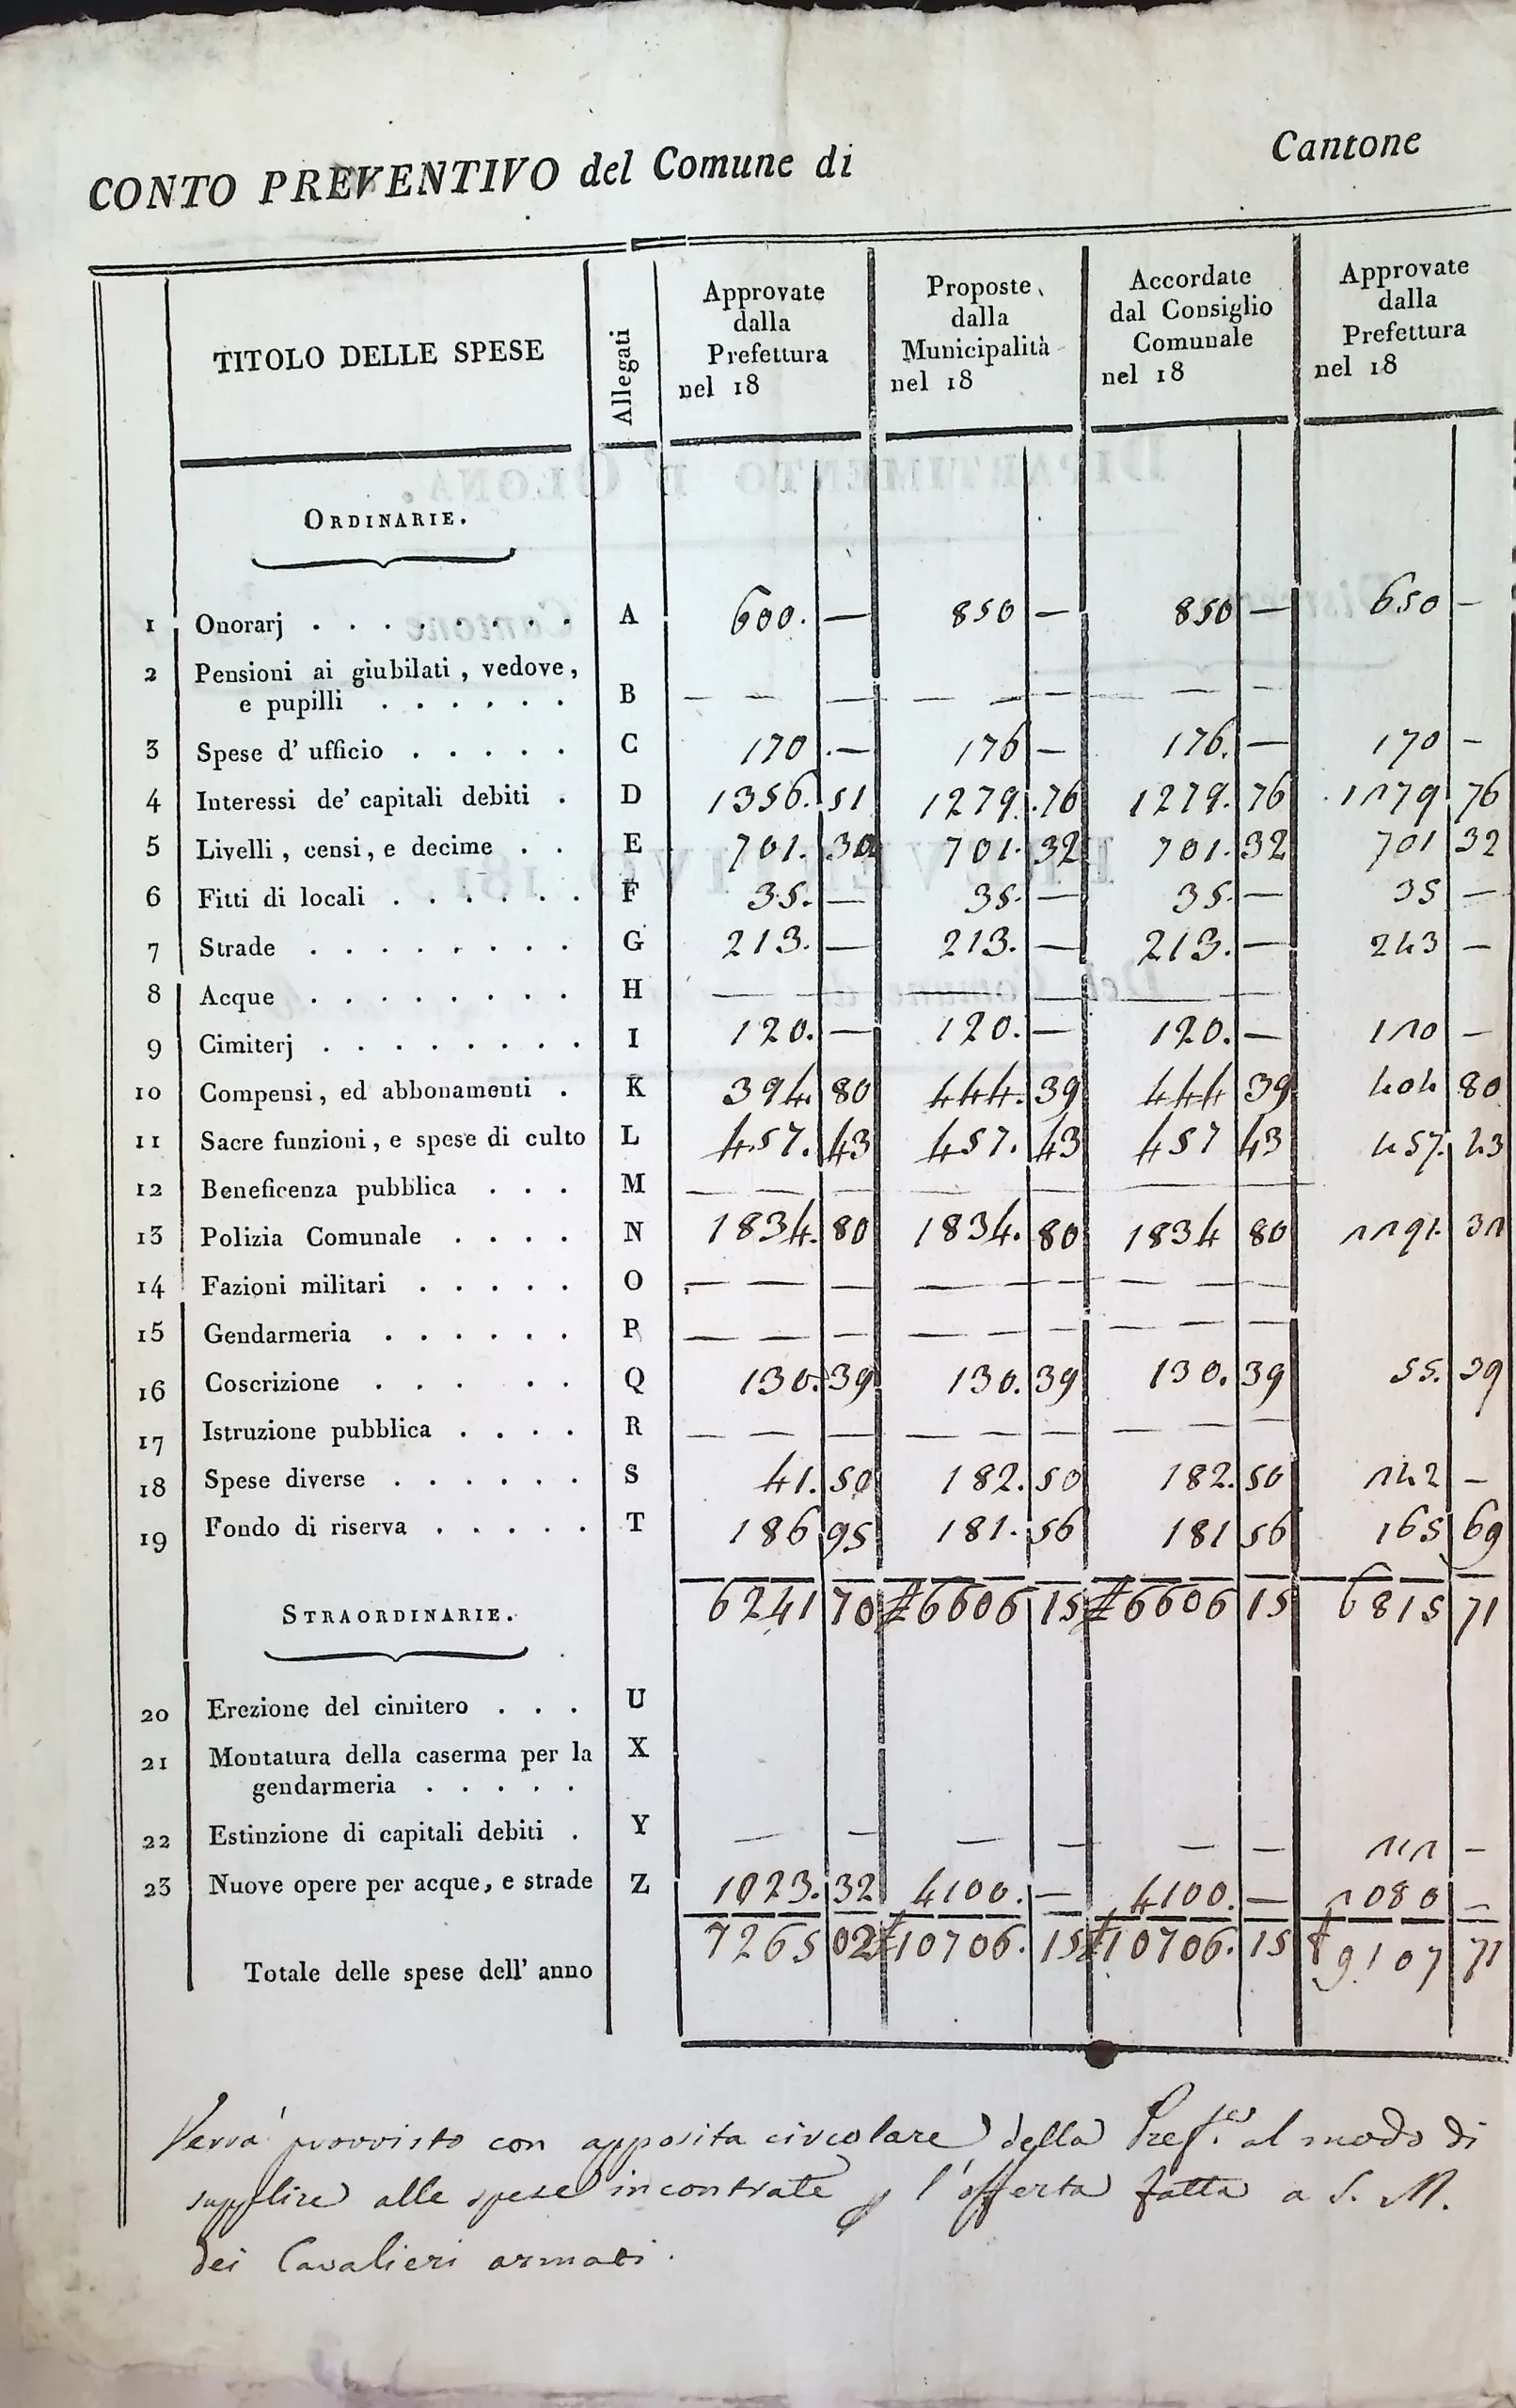 CONTO PREVENTIVO del Comune di Cantone
TITOLO DELLE SPESE
Allegati
Approvate
dalla
Prefettura
nel 18
Proposte
dalla
Municipalità
nel 18
Accordate
dal Consiglio
Comunale
nel 18
Approvate
dalla
Prefettura
nel 18
ORDINARIE.
1 Onorarj . . . . . . . . A 600. — 850 — 850 — 650 —
2 Pensioni ai giubilati, vedove,
e pupilli . . . . . . B — — — — — — — — —
3 Spese d' ufficio . . . . . C 170 . — 176 — 176. — 170 —
4 Interessi de' capitali debiti . D 1356. 51 1279. 76 1279. 76 1279 76
5 Livelli, censi, e decime . . E 701. 32 701. 32 701. 32 701 32
6 Fitti di locali . . . . . . F 35. — 35. — 35. — 35 —
7 Strade . . . . . . . . G 213. — 213. — 213. — 243 —
8 Acque . . . . . . . . H — — — — — —
9 Cimiterj . . . . . . . . I 120. — 120. — 120. — 120 —
10 Compensi, ed abbonamenti . K 394. 80 444. 39 444 39 404 80
11 Sacre funzioni, e spese di culto L 457. 43 457. 43 457 43 457. 43
12 Beneficenza pubblica . . . M — — — — — —
13 Polizia Comunale . . . . N 1834. 80 1834. 80 1834 80 2291. 32
14 Fazioni militari . . . . . O — — — — — — — —
15 Gendarmeria . . . . . . P — — — — — — — — —
16 Coscrizione . . . . . Q 130. 39 130. 39 130. 39 55. 39
17 Istruzione pubblica . . . . R — — — — — — — — —
18 Spese diverse . . . . . . S 41. 50 182. 50 182. 50 242 —
19 Fondo di riserva . . . . . T 186 95 181. 56 181 56 165 69
6241 70 6606 15 6606 15 6815 71
STRAORDINARIE.
20 Erezione del cimitero . . . U
21 Montatura della caserma per la X
gendarmeria . . . . .
22 Estinzione di capitali debiti . Y — — — — — — 212 —
23 Nuove opere per acque, e strade Z 1023. 32 4100. — 4100. — 2080 —
Totale delle spese dell' anno 7265 02 10706. 15 10706. 15 9107 71
Verrà provvisto con apposita circolare della Pref.ra al modo di
supplire alle spese incontrate p l'offerta fatta a S. M.
dei Cavalieri armati.